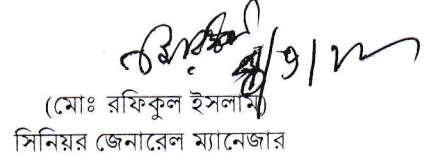 (মোঃ রফিকুল ইসলাম)
সিনিয়র জেনারেল ম্যানেজার